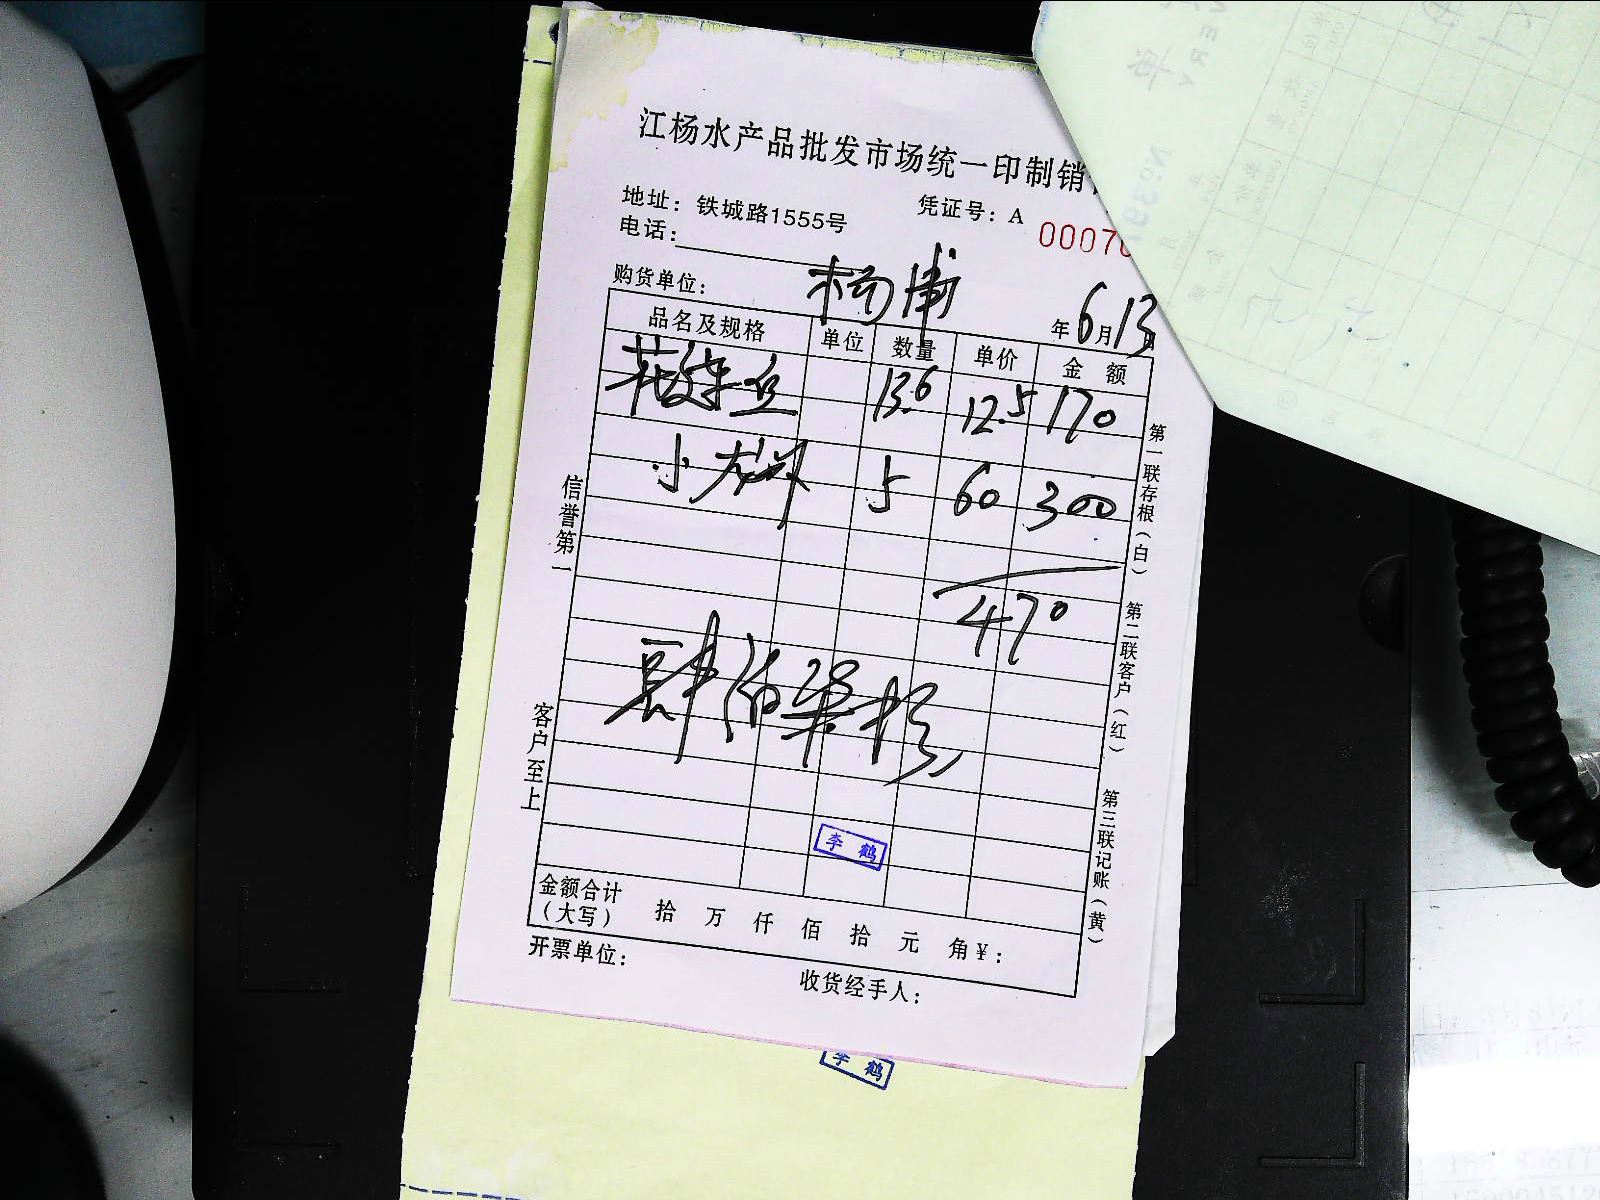 江杨水产品批发市场统一印制销
地址：铁城路1555号 凭证号：A 0007
电话：
购货单位： 杨浦 年6月13
品名及规格 单位 数量 单价 金额
13.6 12.5 170
小 5 60 300
470
肆佰柒拾
李鹤
金额合计（大写） 拾 万 仟 佰 拾 元 角 ¥：
开票单位： 收货经手人：
信誉第一 客户至上
第一联存根（白） 第二联客户（红） 第三联记账（黄）
李鹤